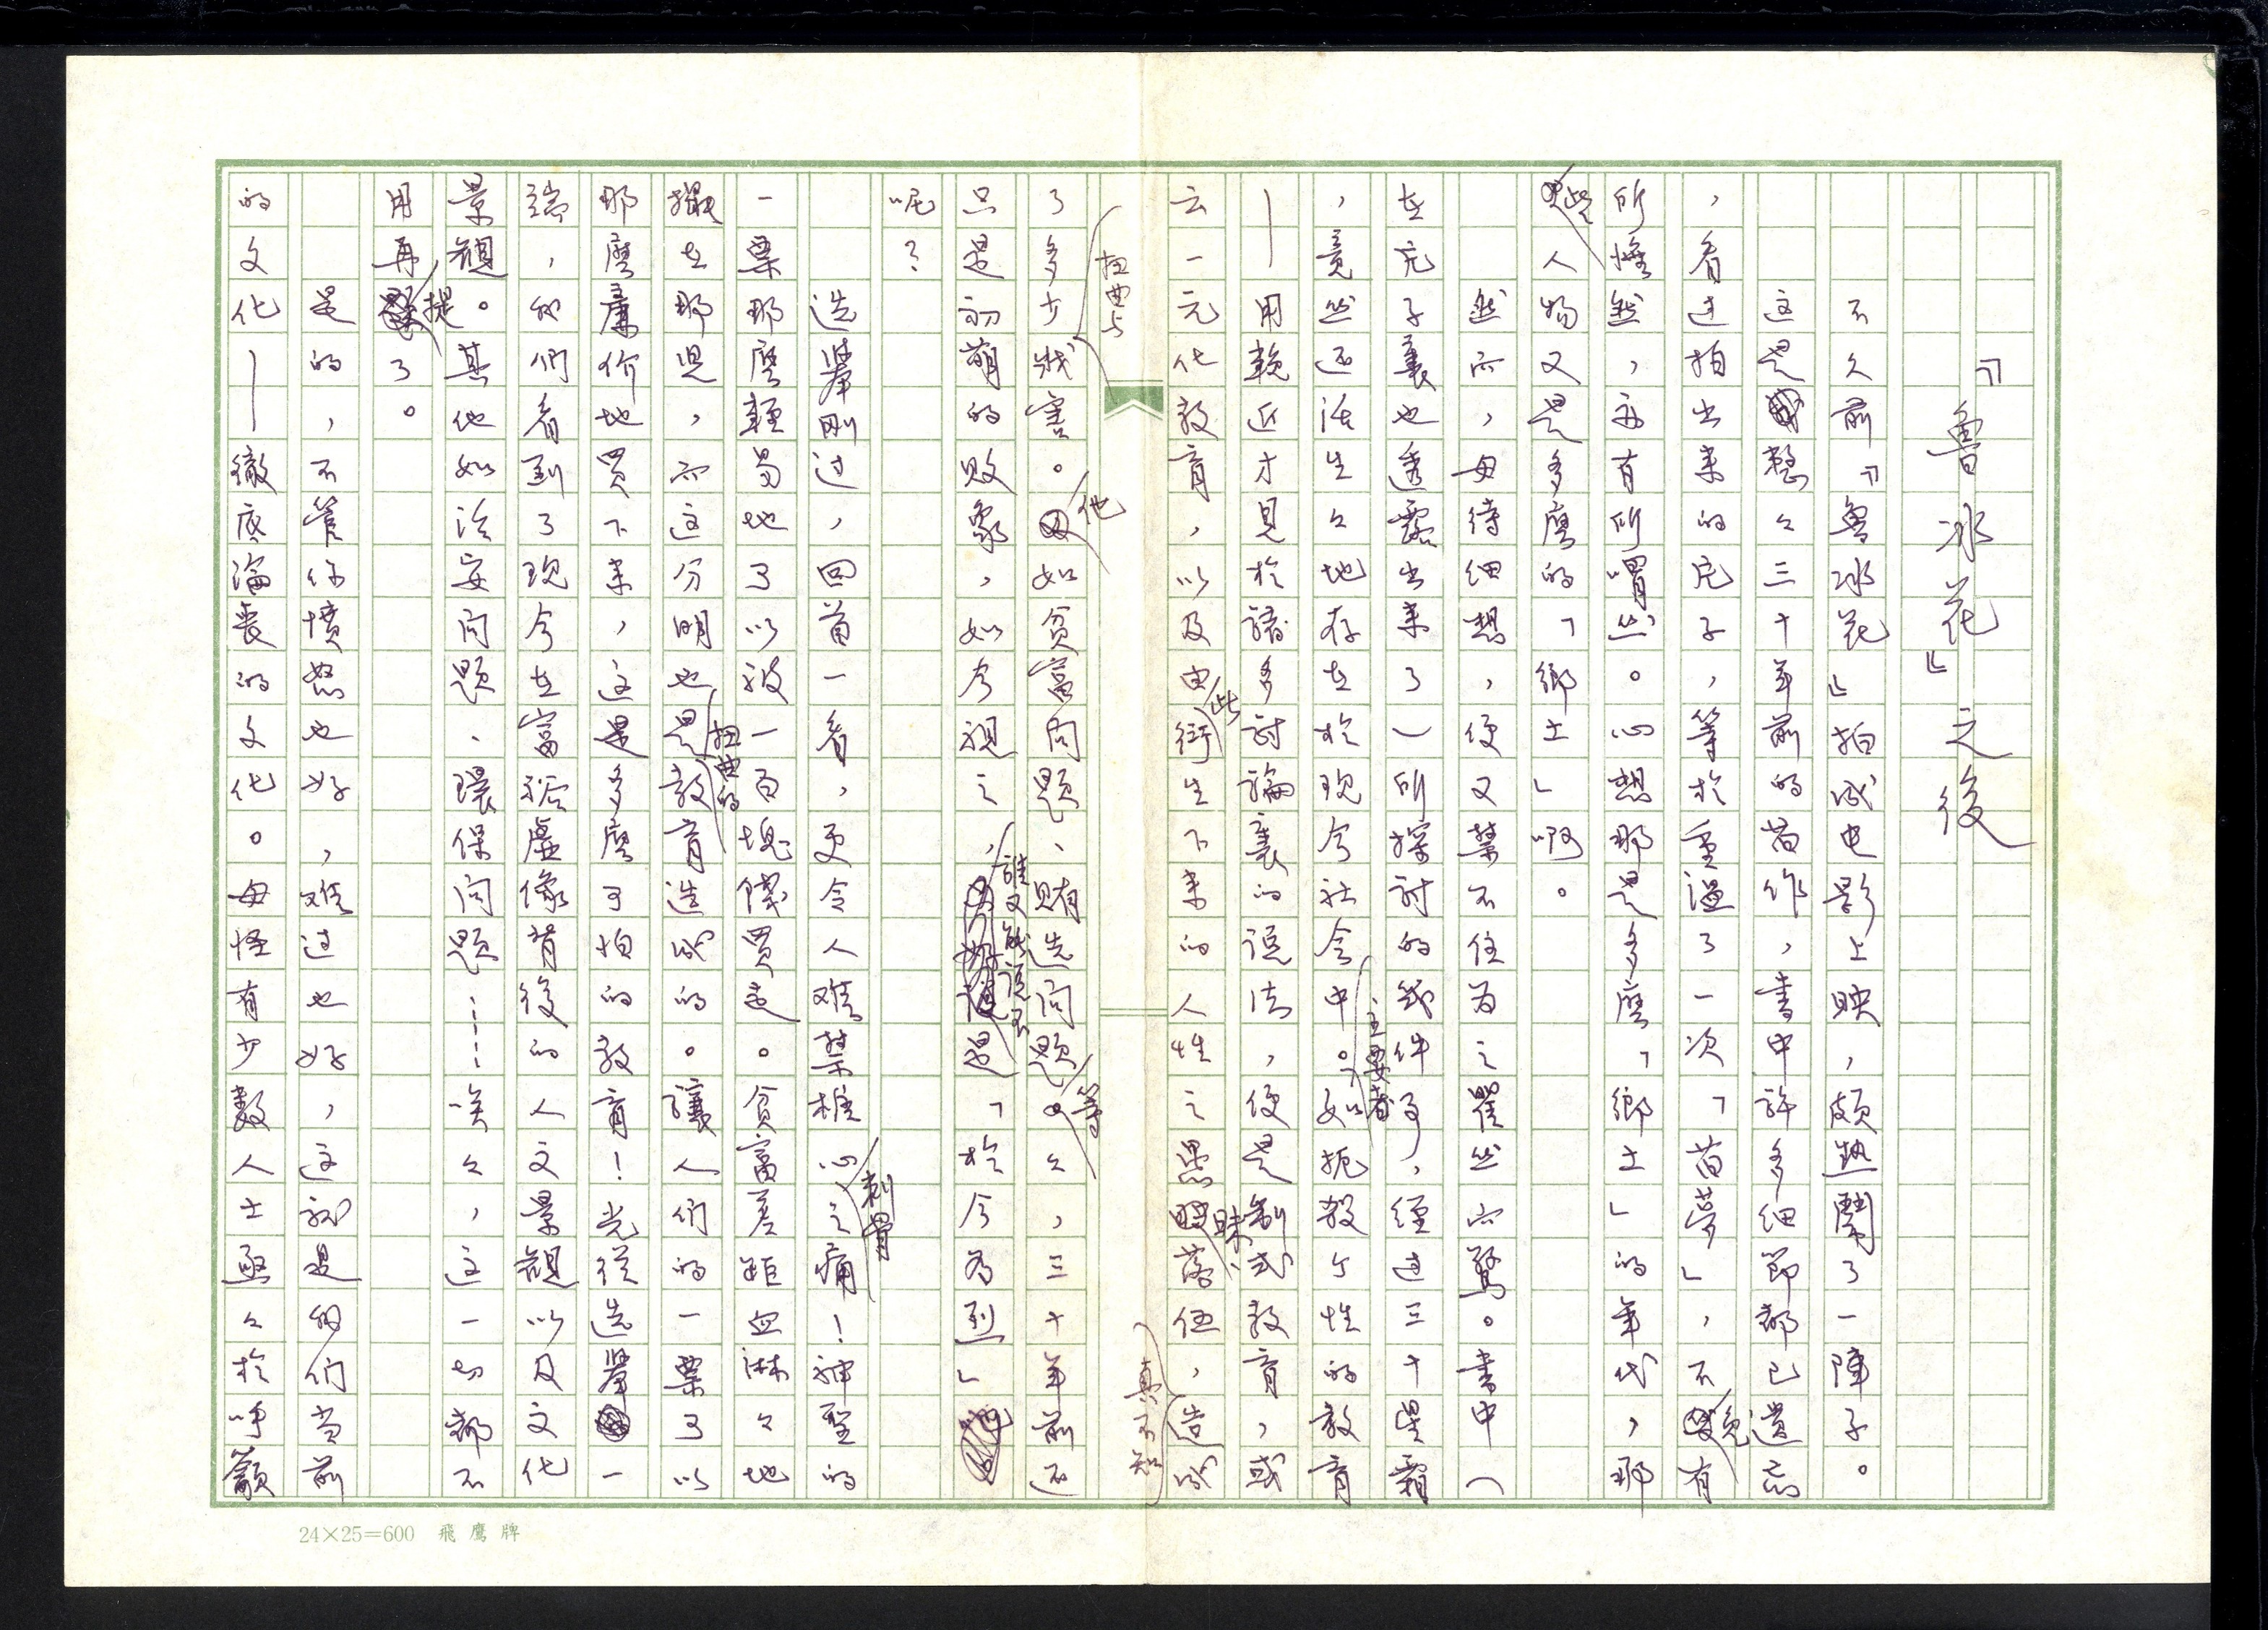 『魯冰花』之後
不久前『魯冰花』拍成电影上映，頗熱鬧了一陣子。
这是整々三十年前的旧作，書中許多細節都已遺忘
，看过拍出来的片子，等於重溫了一次「旧夢」，不免有
所悵然，亦有所喟然。心想那是多麼「鄉土」的年代，那
些人物又是多麼的「鄉土」啊。
然而，毋待細想，便又禁不住为之瞿然而驚。書中（
在片子裏也透露出来了）所探討的幾件事，經过三十星霜
，竟然还活生々地存在於現今社会中。主要者如扼殺个性的教育
——用較近才見於諸多討論裏的說法，便是制式教育，或
云一元化教育，以及由此衍生下来的人性之愚昧、落伍，真不知造成
了多少扭曲与戕害。他如貧富问题、賄选问题等々，三十年前还
只是初萌的敗象，如今視之，誰又能說不是「於今为烈」
呢？
选举刚过，回首一看，更令人难禁椎心刺骨之痛！神聖的
一票那麼輕易地了以被一百塊錢買走。貧富差距血淋々地
擺在那児，而这分明也是扭曲的教育造成的。讓人们的一票了以
那麼廉价地買下来，这是多麼可怕的教育！光從选举一
端，我们看到了現今在富裕虛像背後的人文景觀以及文化
景觀。其他如治安问题、環保问题……唉々，这一切都不
用再提了。
是的，不管你憤怒也好，难过也好，这就是我们当前
的文化——徹底淪喪的文化。毋怪有少數人士亟々於呼籲
24×25=600 飛鷹牌